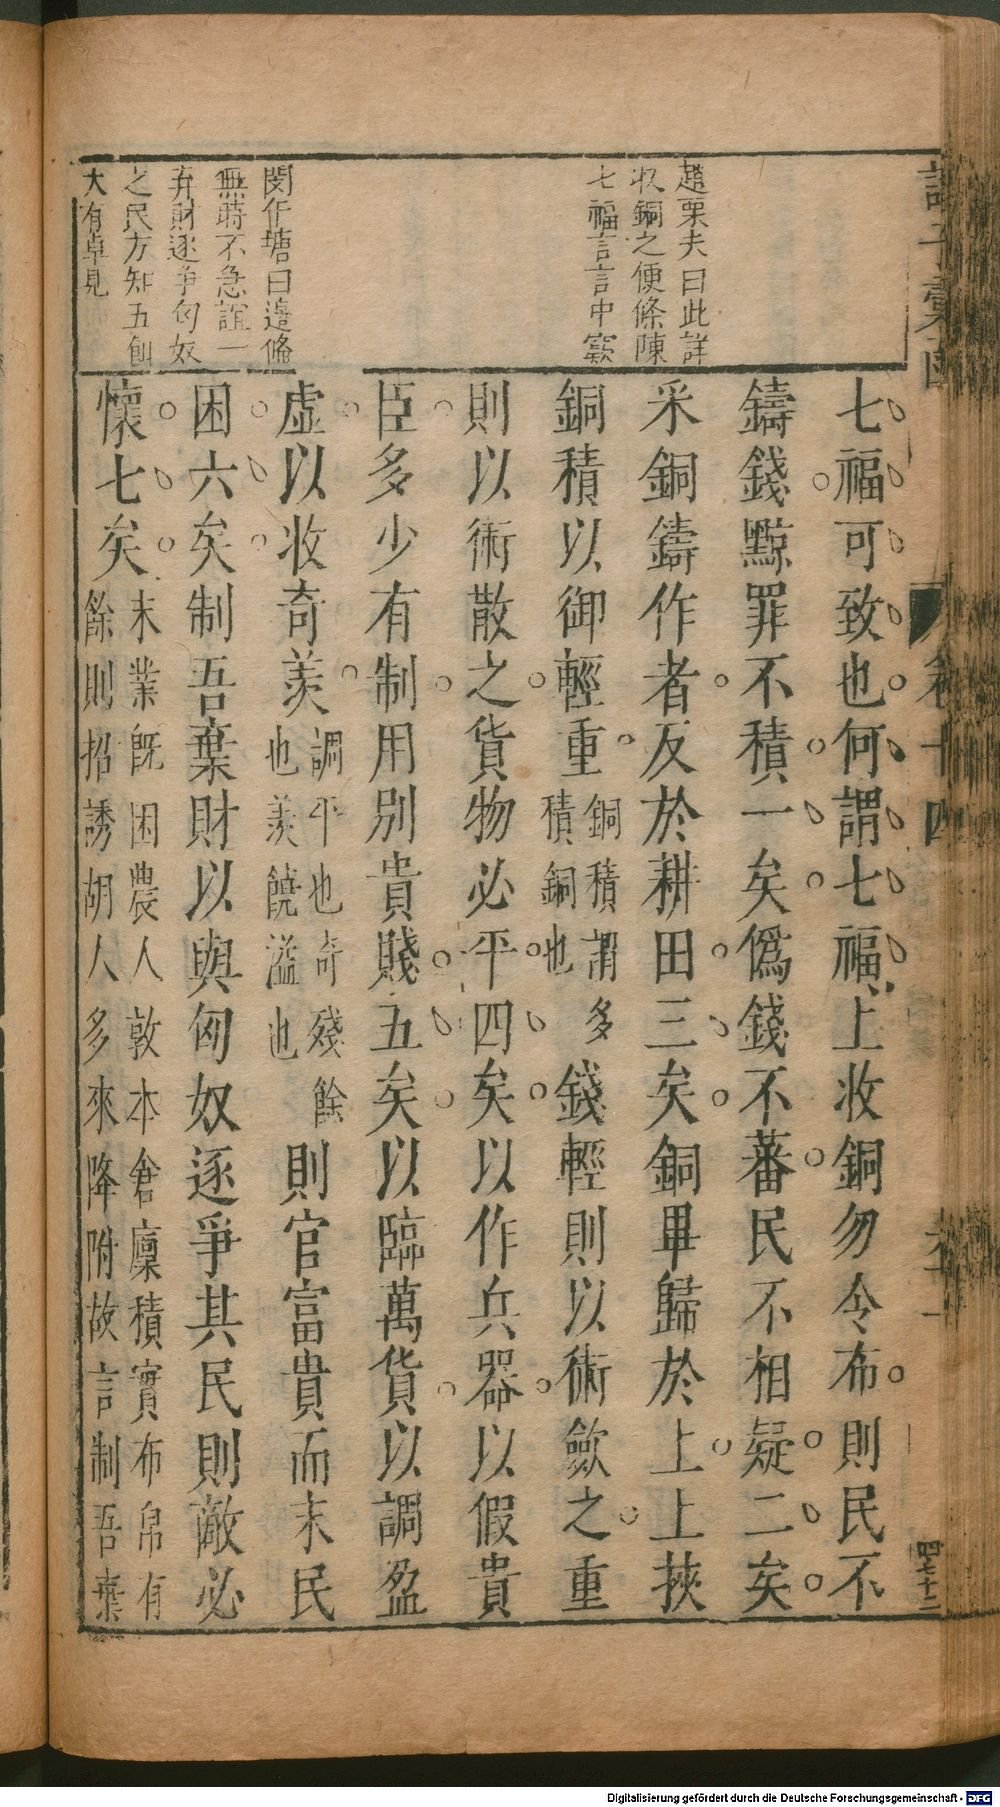 趙栗夫曰此詳
收銅之便條陳
七福言言中窾
閔作塘曰邊備
無時不急誼一
弃財逐爭匈奴
之民方知五餌
大有卓見
七福可致也何謂七福上收銅勿令布則民不
鑄錢黥罪不積一矣僞錢不蕃民不相疑二矣
采銅鑄作者反於耕田三矣銅畢歸於上上挾
銅積以御輕重銅積謂多積銅也錢輕則以術斂之重
則以術散之貨物必平四矣以作兵器以假貴
臣多少有制用別貴賤五矣以臨萬貨以調盈
虛以收奇羨調平也奇殘餘也羨饒溢也則官富貴而末民
困六矣制吾棄財以與匈奴逐爭其民則敵必
懷七矣末業旣困農人敦本倉廩積實布帛有餘則招誘胡人多來降附故言制吾棄
卷十四
四七十二
Digitalisierung gefördert durch die Deutsche Forschungsgemeinschaft - DFG